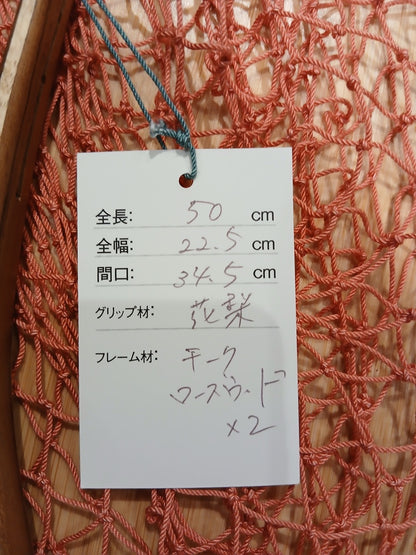 全長: 50 cm
全幅: 22.5 cm
間口: 34.5 cm
グリップ材: 花梨
フレーム材: チーク
ローズウッド
×2